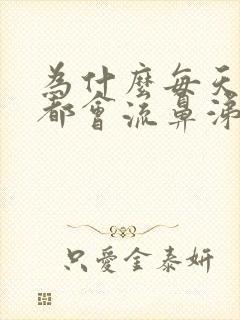 為什麼每天
都會流鼻涕
只愛金泰妍